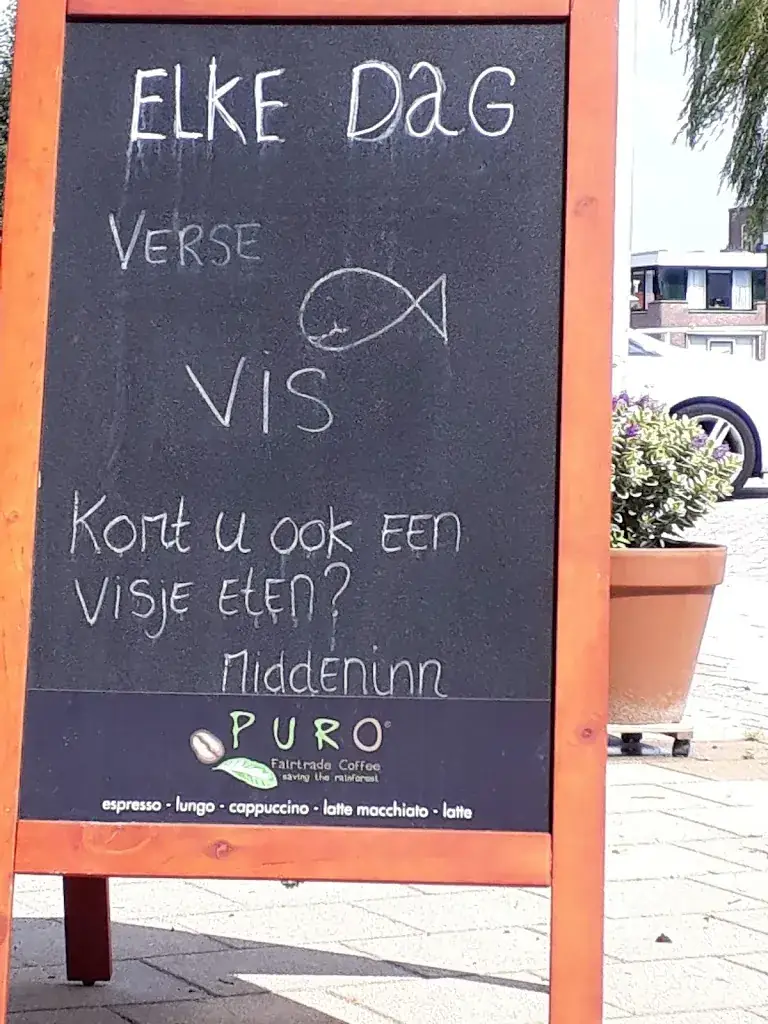 ELKE DAG
VERSE
VIS
Komt u ook EEN
visje eten?
Middeninn
PURO
Fairtrade Coffee
saving the rainforest
espresso - lungo - cappuccino - latte macchiato - latte